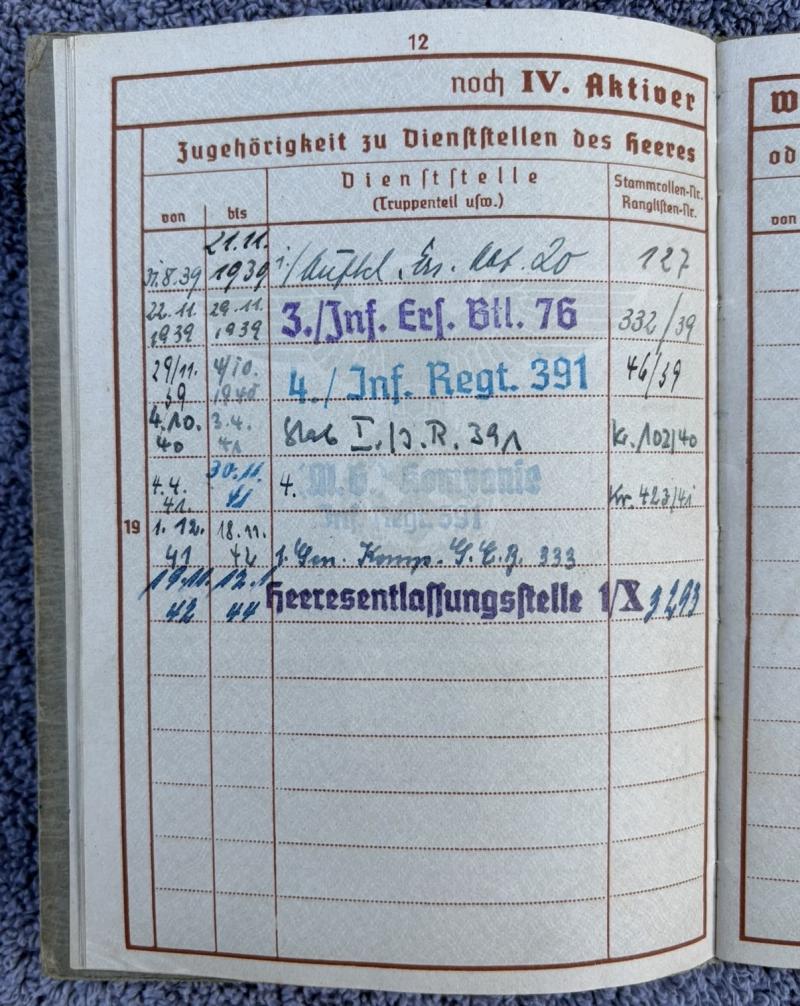 12
noch IV. Aktiver
Zugehörigkeit zu Dienststellen des Heeres
von bis Dienststelle (Truppenteil usw.) Stammrollen-Nr. Ranglisten-Nr.
8.39 21.11. 1939 Ers. 20 127
22.11. 1939 29.11. 1939 3./Inf. Ers. Btl. 76 332/39
29/11. 39 4/10. 1940 4./Inf. Regt. 391 46/39
4.10. 40 3.4. 41 Stab I./J.R. 391 Kr. 102/40
4.4. 41. 30.11. 41 4. M.G. Kompanie Inf. Regt. 391 Kr. 423/41
19 1.12. 41 18.11. 42 Gen. Komp. G.E.B. 333
19.11. 42 12.1 44 Heeresentlassungsstelle 1/X 3293
W
od
von